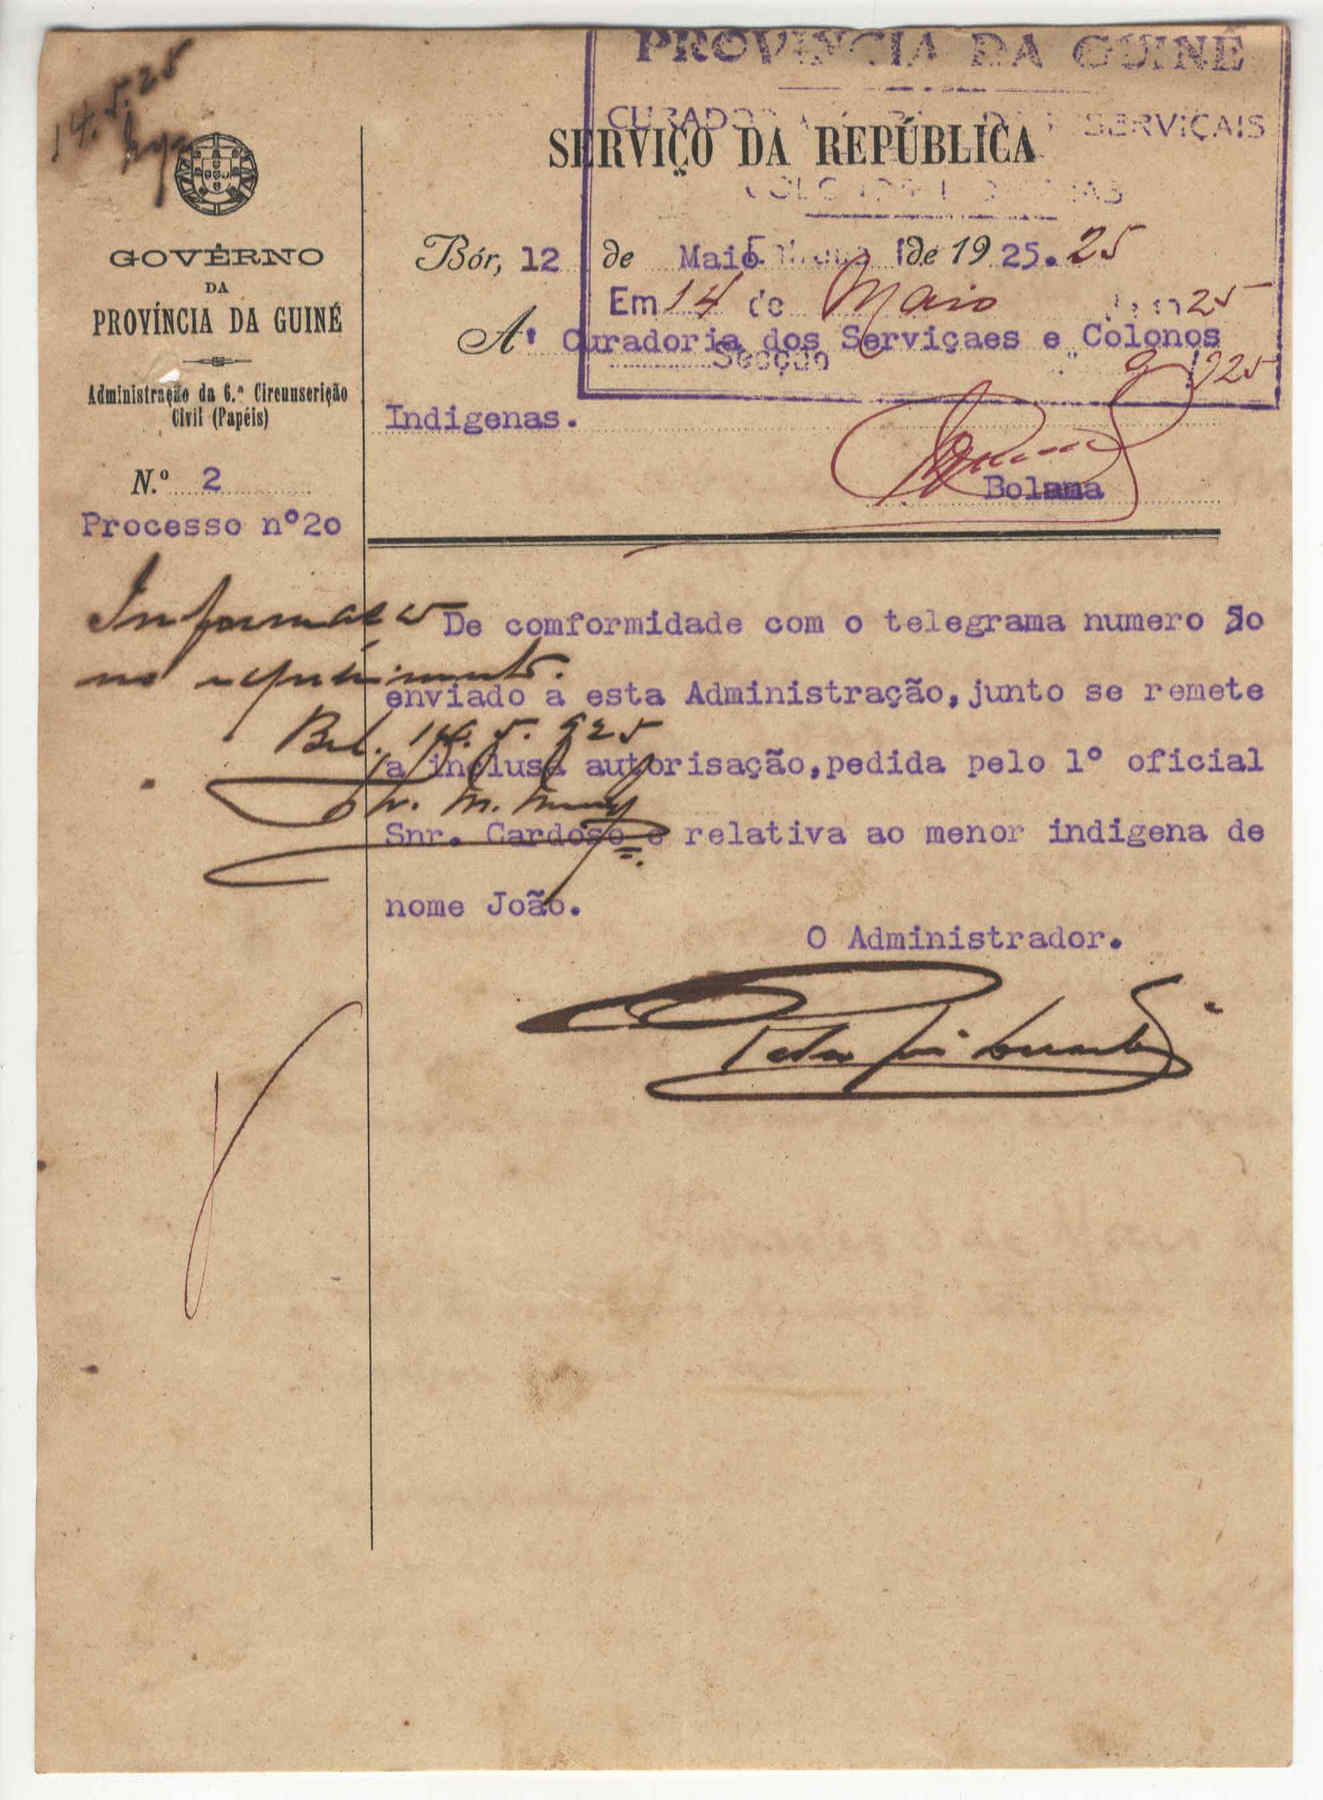 14.5.25
PROVINCIA DA GUINÉ
SERVIÇAIS
SERVIÇO DA REPÚBLICA
GOVÊRNO
DA
PROVÍNCIA DA GUINÉ
Administração da 6.ª Circunscrição
Civil (Papéis)
N.º 2
Processo nº20
Bór, 12 de Maio de 1925.
25
Em 14 de Maio 25
Secção
A' Curadoria dos Serviçaes e Colonos
925
Indigenas.
Bolama
De comformidade com o telegrama numero 50
enviado a esta Administração,junto se remete
a inclusa autorisação,pedida pelo 1º oficial
Snr. Cardoso e relativa ao menor indigena de
nome João.
O Administrador.
no requerimento.
14.5.925